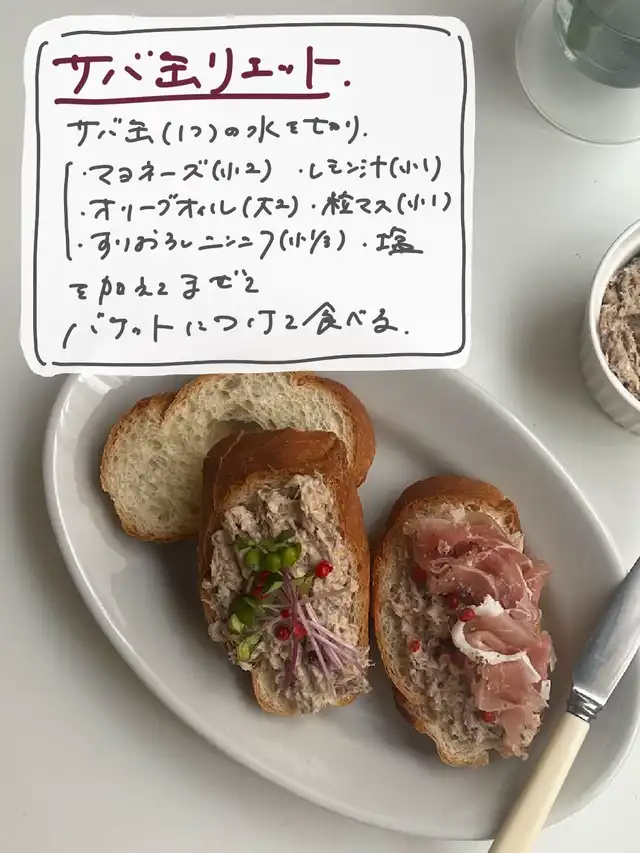 サバ缶リエット.
サバ缶(1つ)の水を切り.
・マヨネーズ(小2) ・レモン汁(小1)
・オリーブオイル(大2)・粒マス(小1)
・すりおろしニンニク(小1/3)・塩
を加えてまぜて
バケットにつけて食べる.